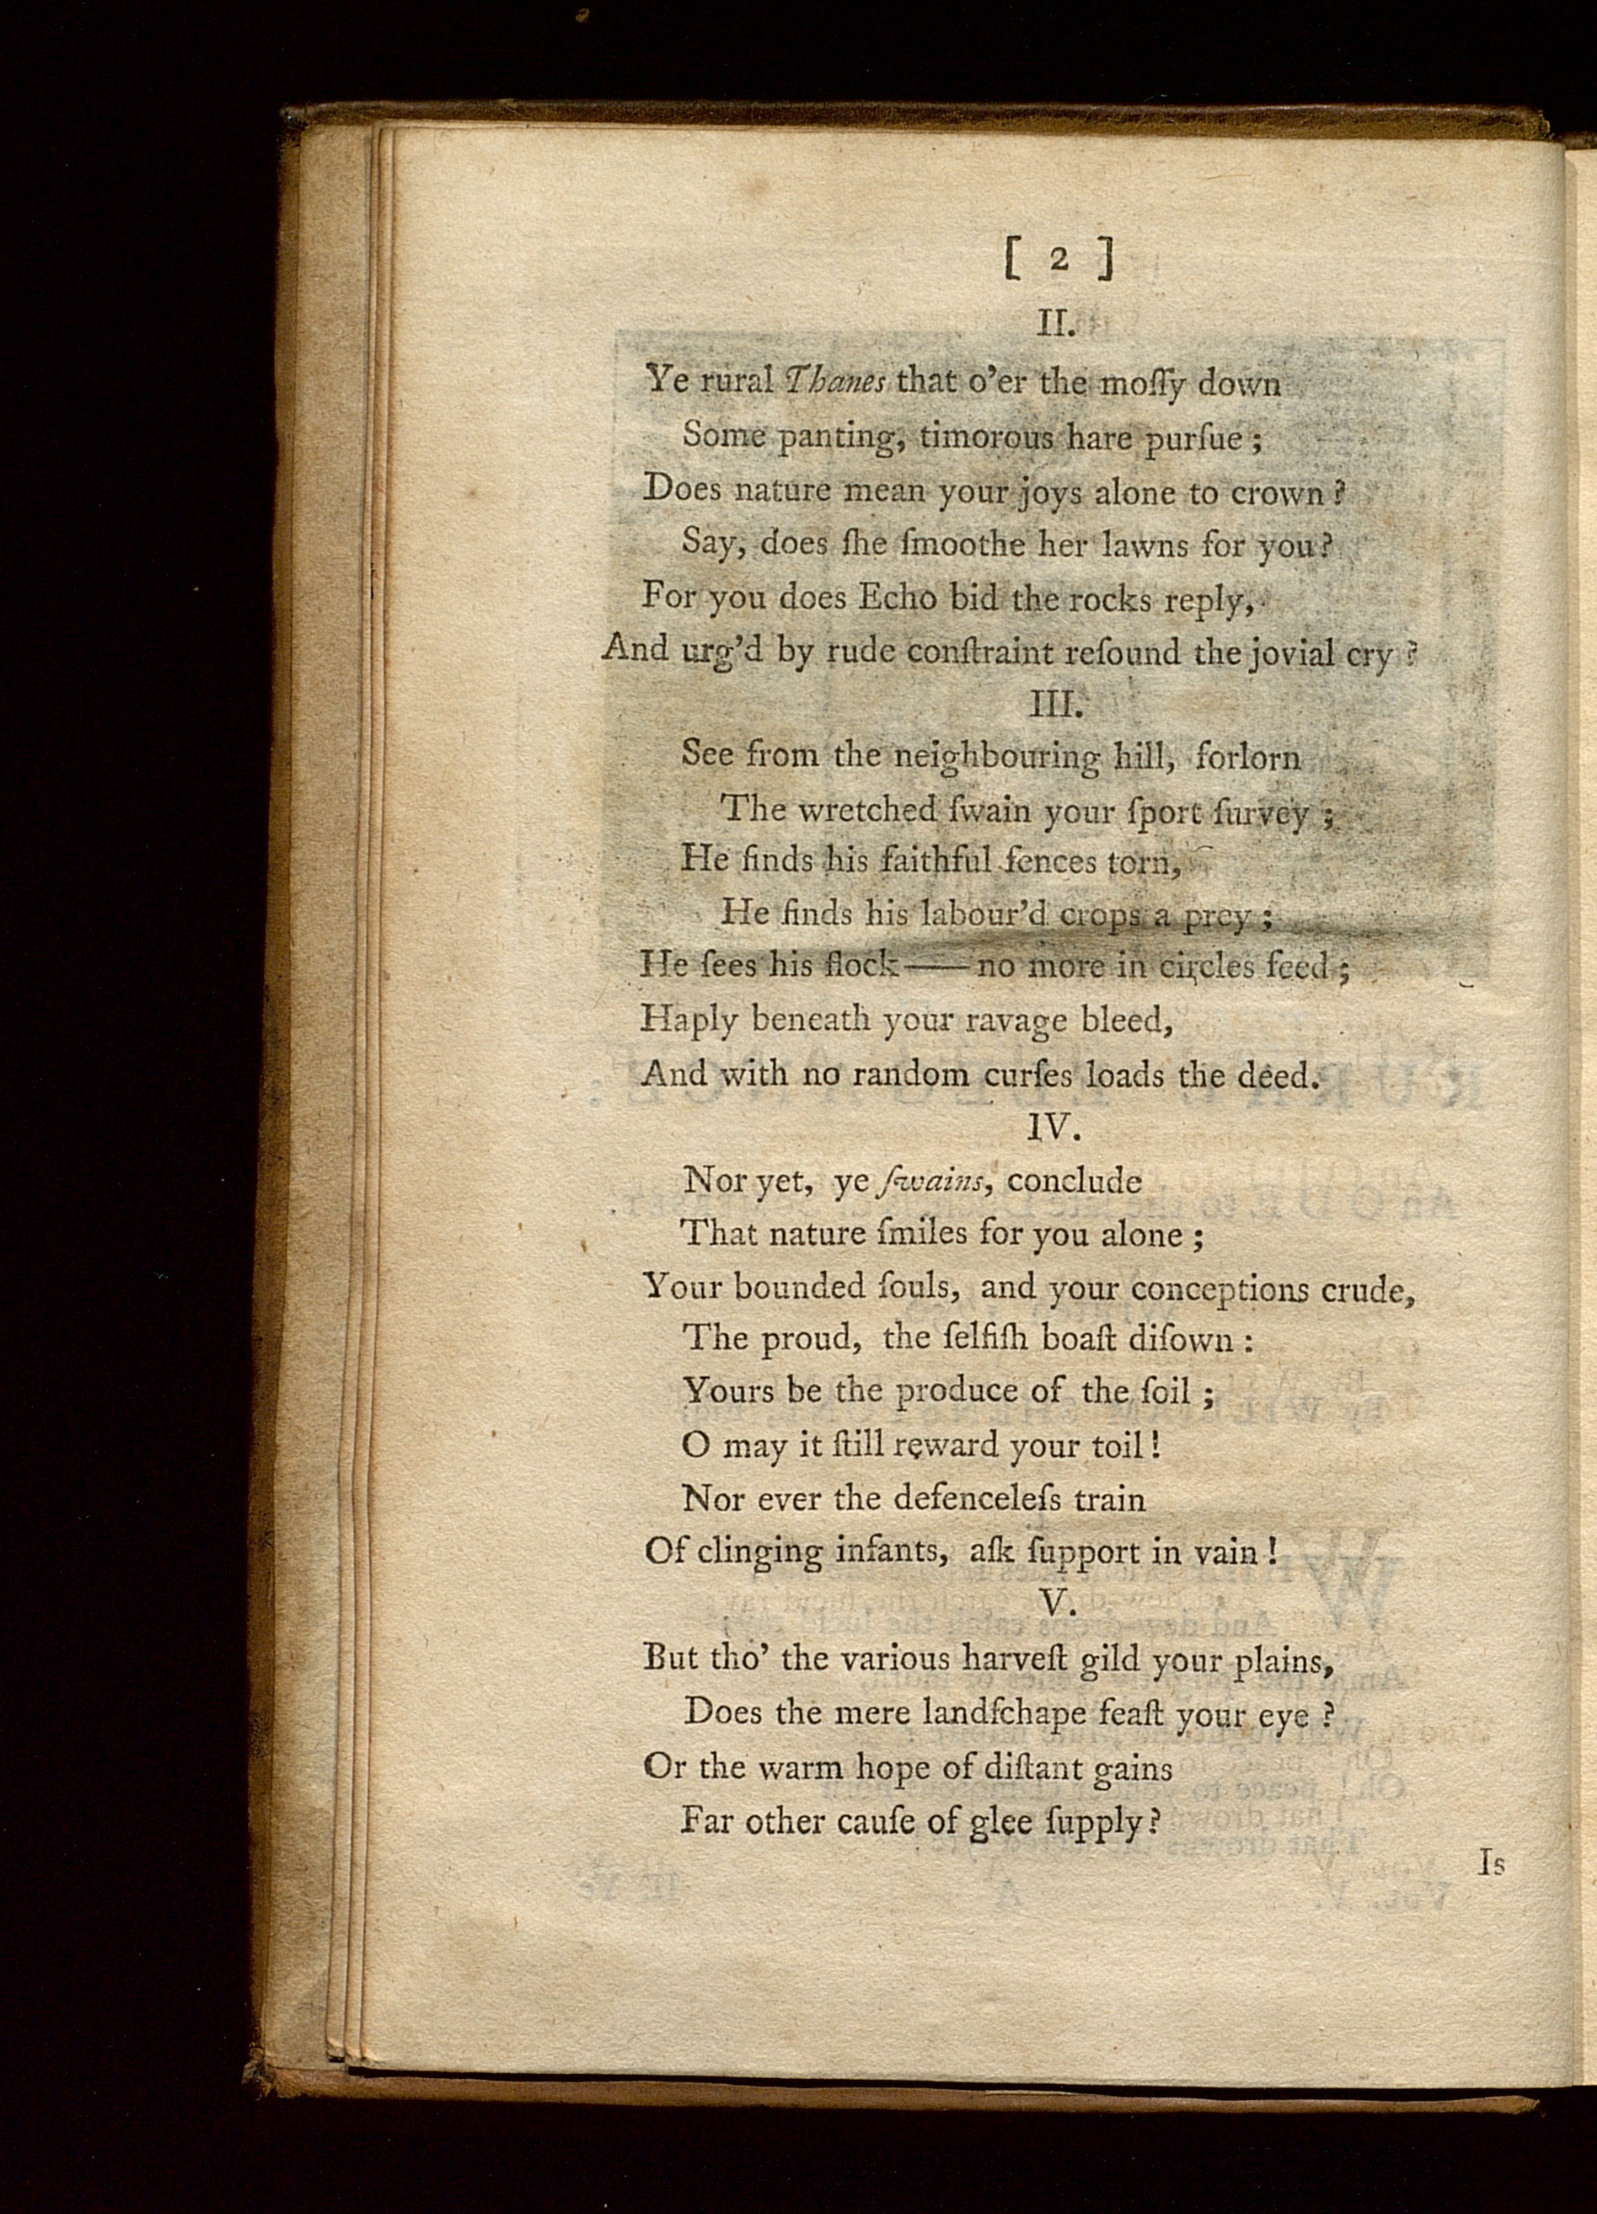 [ 2 ]
II.
Ye rural Thanes that o'er the moſſy down
Some panting, timorous hare purſue ;
Does nature mean your joys alone to crown ?
Say, does ſhe ſmoothe her lawns for you ?
For you does Echo bid the rocks reply,
And urg'd by rude conſtraint reſound the jovial cry ?
III.
See from the neighbouring hill, forlorn
The wretched ſwain your ſport ſurvey ;
He finds his faithful fences torn,
He finds his labour'd crops a prey ;
He ſees his flock——no more in circles feed ;
Haply beneath your ravage bleed,
And with no random curſes loads the deed.
IV.
Nor yet, ye ſwains, conclude
That nature ſmiles for you alone ;
Your bounded ſouls, and your conceptions crude,
The proud, the ſelfiſh boaſt diſown :
Yours be the produce of the ſoil ;
O may it ſtill reward your toil !
Nor ever the defenceleſs train
Of clinging infants, aſk ſupport in vain !
V.
But tho' the various harveſt gild your plains,
Does the mere landſchape feaſt your eye ?
Or the warm hope of diſtant gains
Far other cauſe of glee ſupply ?
Is